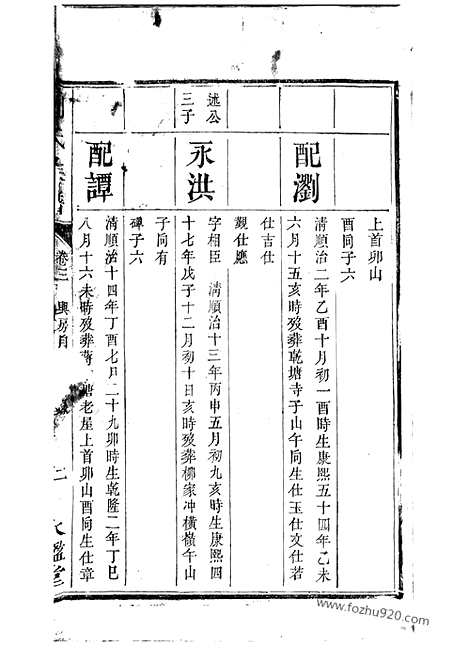 上首卯山
酉同子六
配瀏
清順治二年乙酉十月初一酉時生康熙五十四年乙未
六月十五亥時歿葬乾塘寺子山午同生仕玉仕文仕若
仕吉仕
觀仕應
述公
三子
永洪
字相臣 清順治十三年丙申五月初九亥時生康熙四
十七年戊子十二月初十日亥時歿葬柳家冲橫嶺午山
子同有
碑子六
配譚
清順治十四年丁酉七月二十九卯時生乾隆二年丁巳
八月十六未時歿葬蔣 塘老屋上首卯山酉同生仕章
卷三 興房自
二
鑑堂
www.fozhu920.com